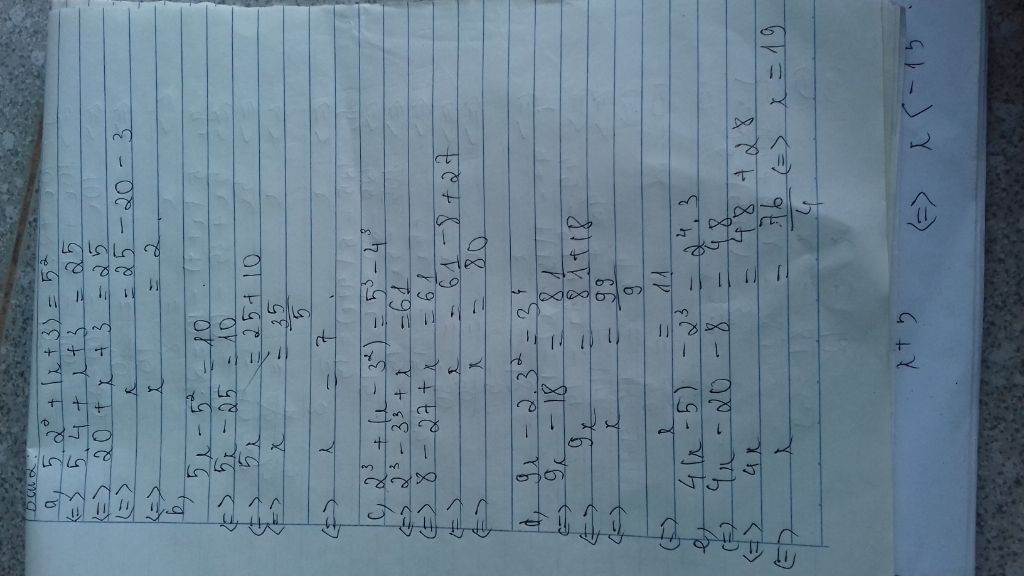 Bài 2
a) 5.2² + (x+3) = 5²
<=> 5.4 + x+3 = 25
<=> 20 + x + 3 = 25
<=> x = 25 - 20 - 3
<=> x = 2
b)
5x - 5² = 10
<=> 5x - 25 = 10
<=> 5x = 25 + 10
<=> x = 35/5
<=> x = 7
c) 2³ + (x - 3²) = 5³ - 4³
<=> 2³ - 3³ + x = 61
<=> 8 - 27 + x = 61
<=> x = 61 - 8 + 27
<=> x = 80
9x - 2.3² = 3⁴
<=> 9x - 18 = 81
<=> 9x = 81 + 18
<=> x = 99/9
<=> x = 11
e) 4(x - 5) - 2³ = 2⁴.3
<=> 4x - 20 - 8 = 48
<=> 4x = 48 + 28
<=> x = 76/4 <=> x = 19
x + 5 <=> x < -15